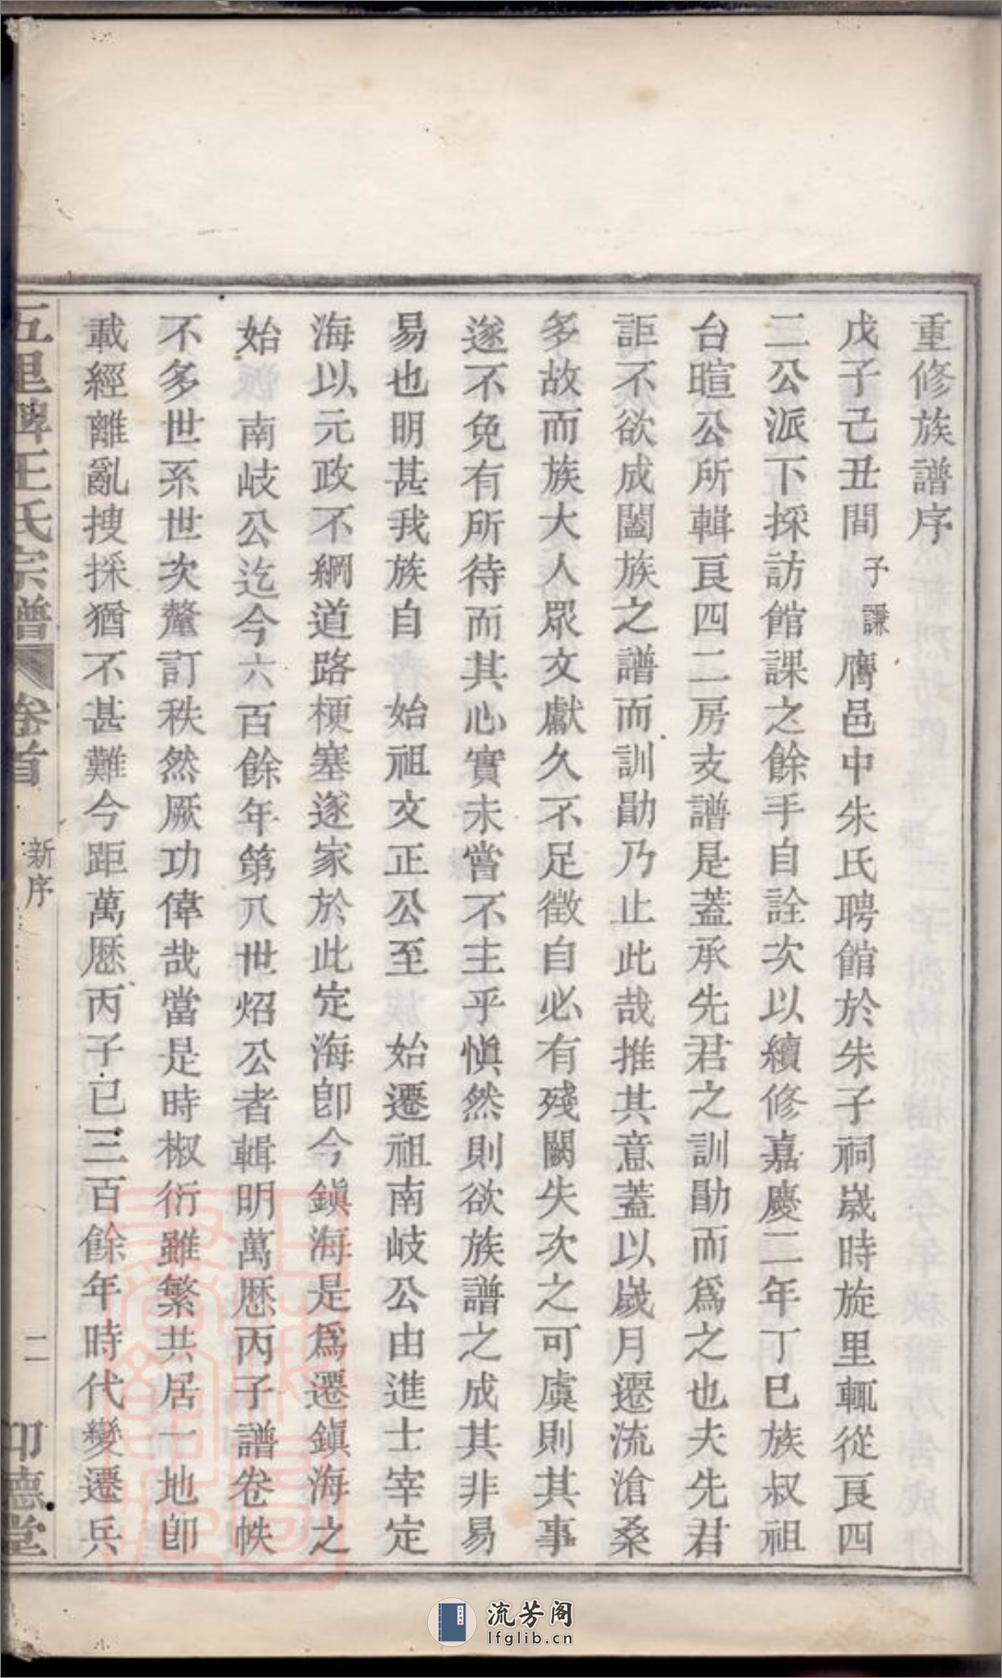 重修族譜序
戊子己丑間子謙膺邑中朱氏聘館於朱子祠嵗時旋里輒從艮四
二公派下採訪館課之餘手自詮次以續修嘉慶二年丁巳族叔祖
台暄公所輯艮四二房支譜是蓋承先君之訓勖而爲之也夫先君
詎不欲成闔族之譜而訓勖乃止此哉推其意蓋以嵗月遷流滄桑
多故而族大人眾文獻久不足徵自必有殘闕失次之可虞則其事
遂不免有所待而其心實未嘗不主乎慎然則欲族譜之成其非易
易也明甚我族自 始祖文正公至 始遷祖南岐公由進士宰定
海以元政不綱道路梗塞遂家於此定海卽今鎭海是爲遷鎭海之
始 南岐公迄今六百餘年第八世炤公者輯明萬厯丙子譜卷帙
不多世系世次釐訂秩然厥功偉哉當是時椒衍雖繁共居一地卽
載經離亂搜採猶不甚難今距萬厯丙子已三百餘年時代變遷兵
五里牌王氏宗譜 卷首 新序 二 印德堂
流芳阁
lfglib.cn